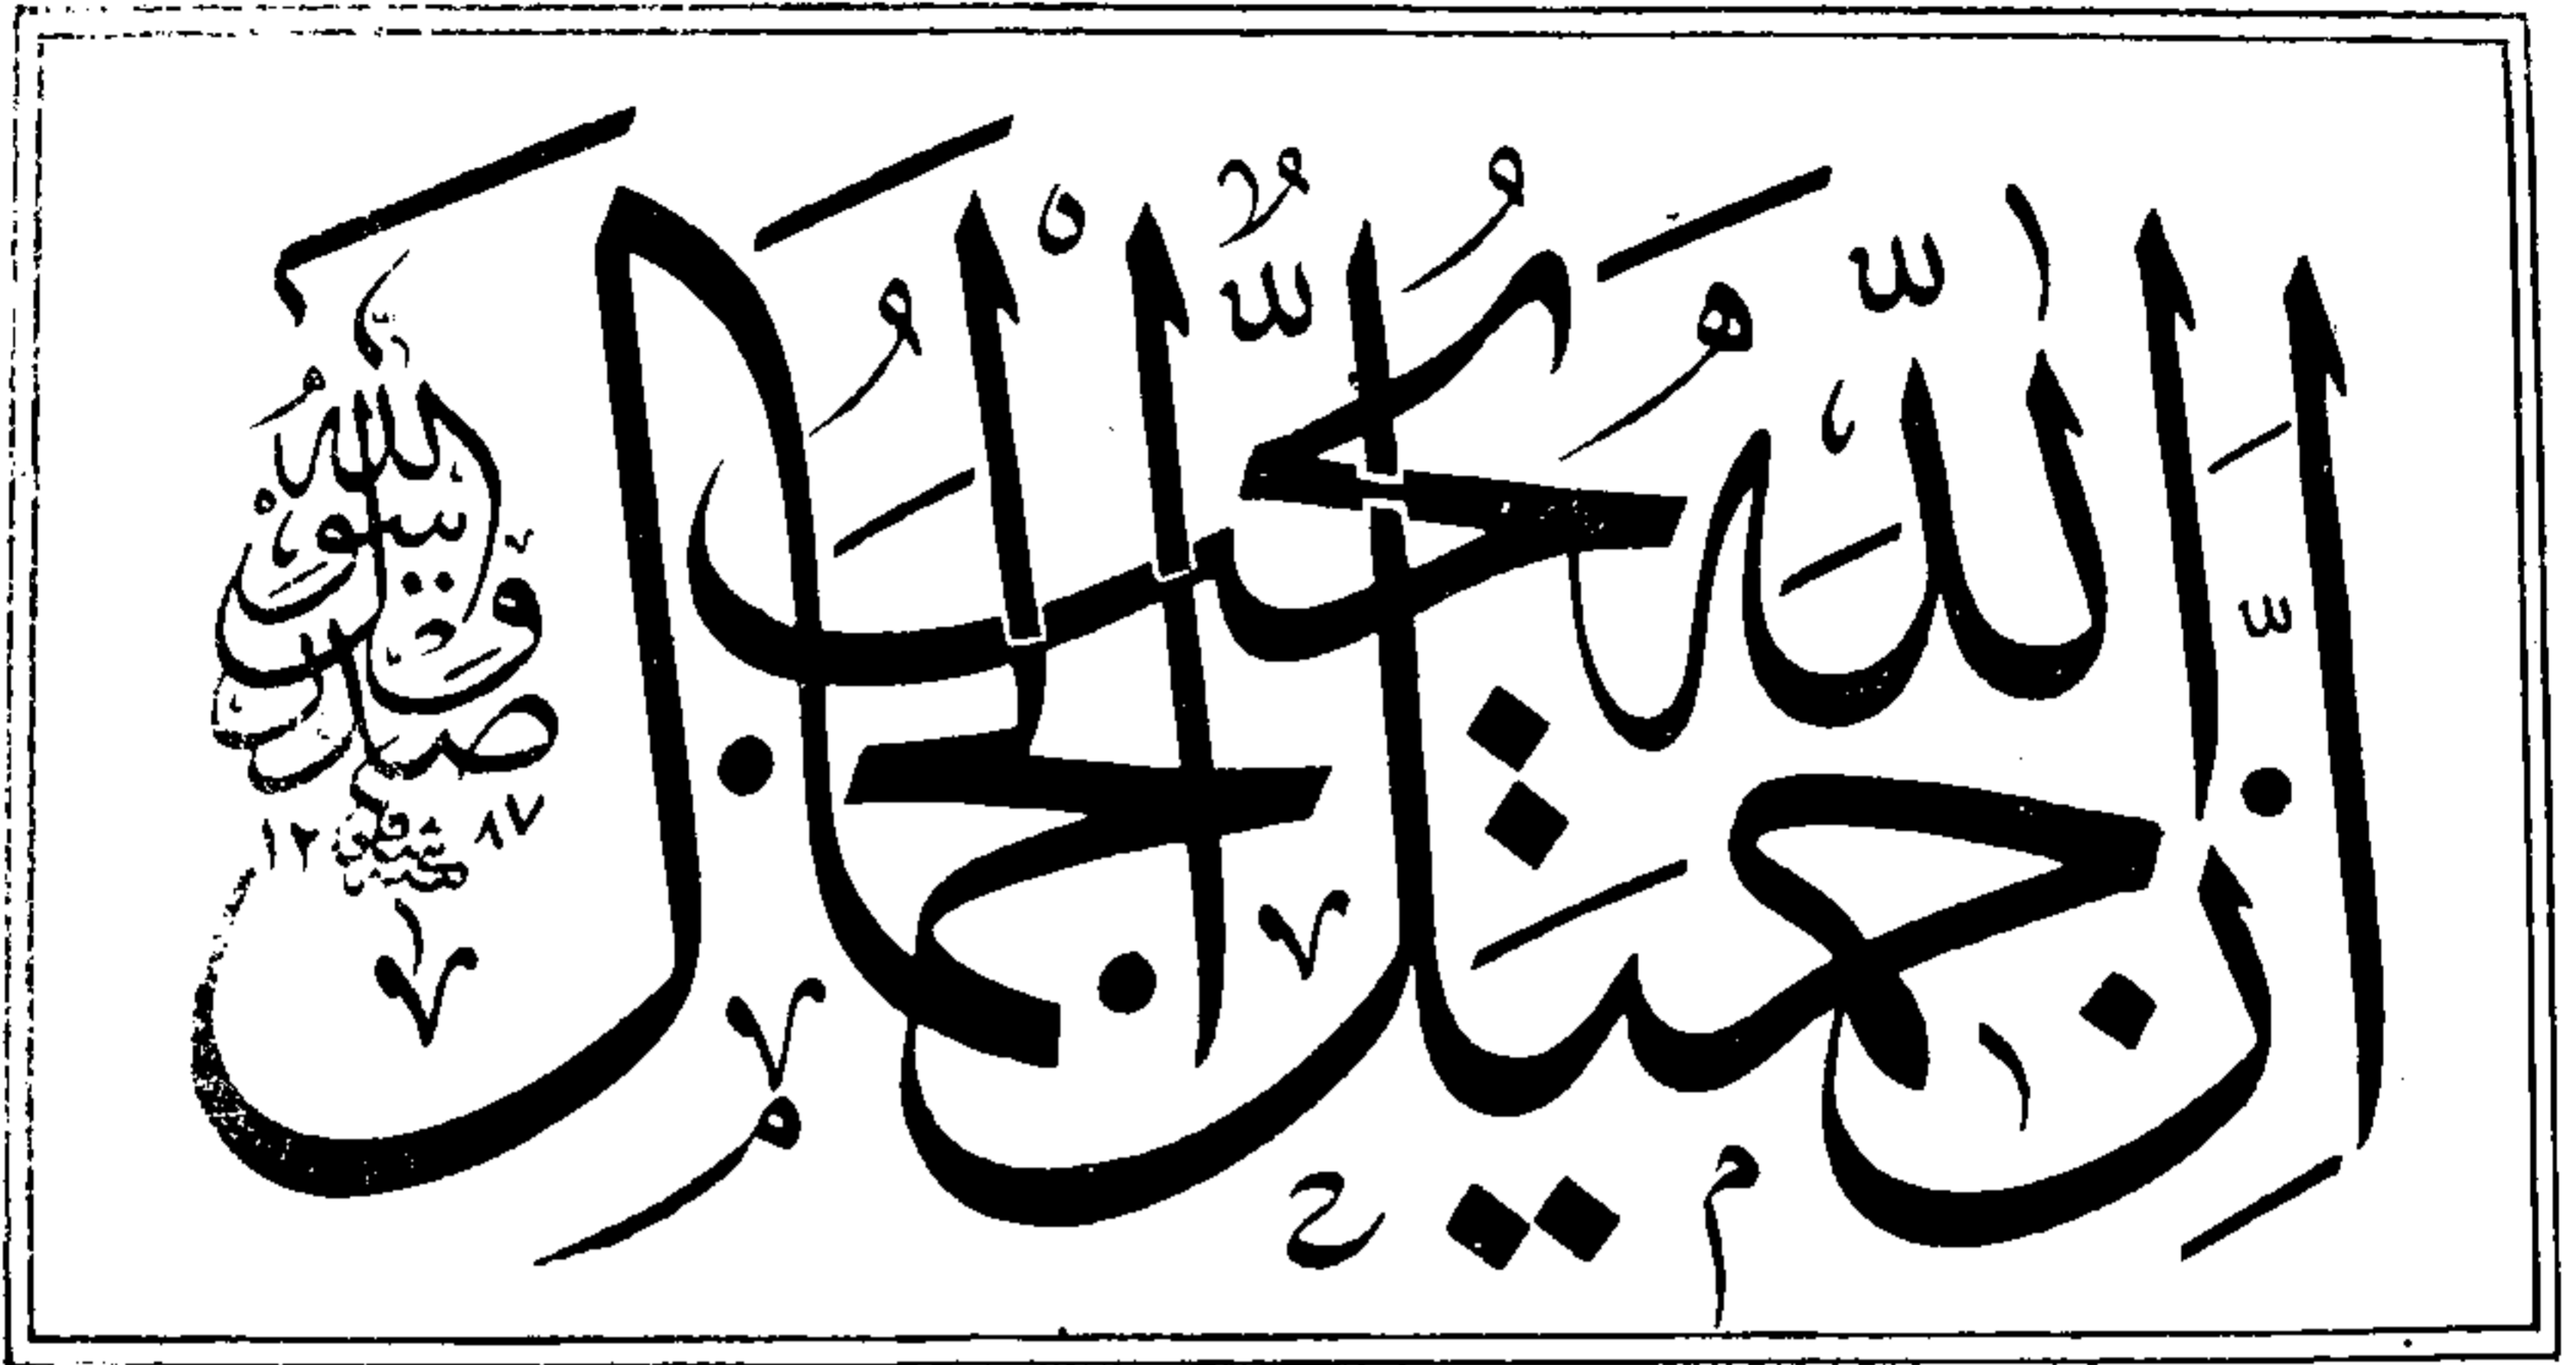 ان الله جميل يحب الجمال
صدق رسول الله
١٢٨٧